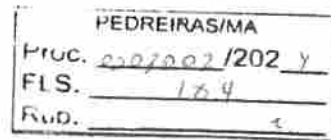 PEDREIRAS/MA
Proc. 0202002/202 4
FLS. 184
RUB.